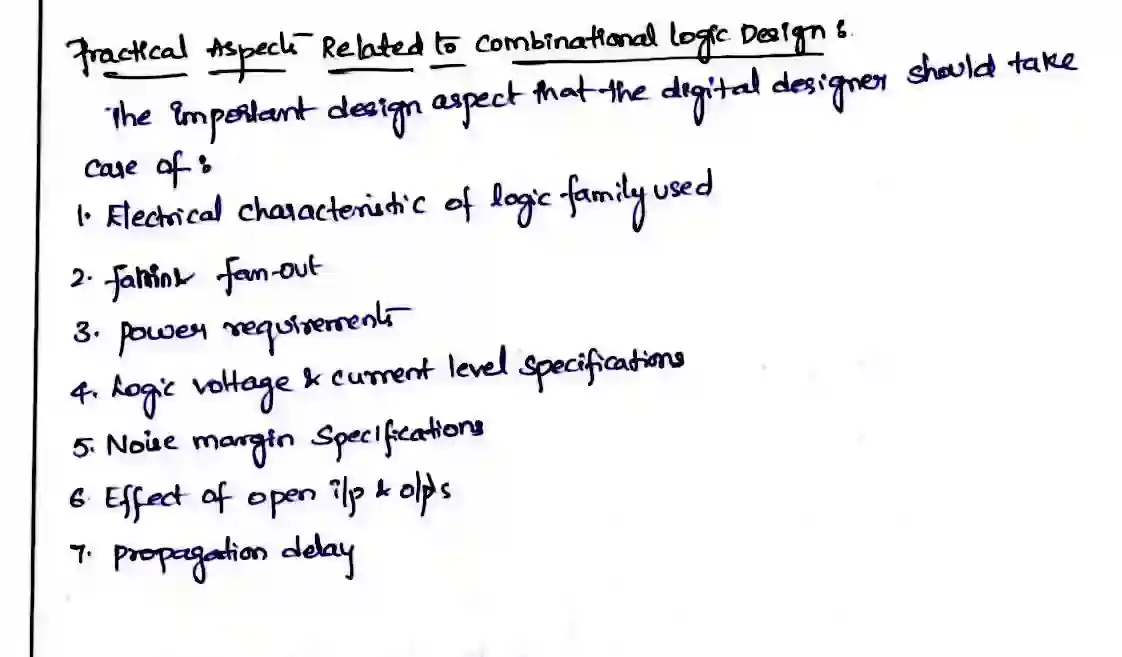 Practical Aspects Related to Combinational Logic Design :
The important design aspect that the digital designer should take
care of :
1. Electrical characteristic of logic family used
2. fanin & fan-out
3. power requirements
4. Logic voltage & current level specifications
5. Noise margin Specifications
6 Effect of open i/p & o/p's
7. propagation delay